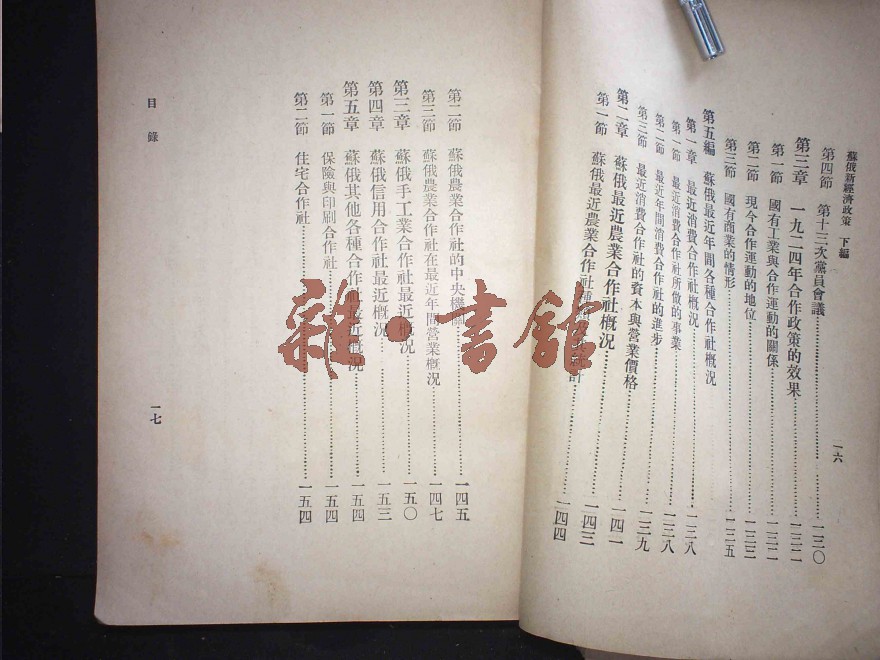 蘇俄新經濟政策 下編
一六
第四節 第十三次黨員會議……一三〇
第三章 一九二四年合作政策的效果……一三二
第一節 國有工業與合作運動的關係……一三二
第二節 現今合作運動的地位……一三三
第三節 國有商業的情形……一三五
第五編 蘇俄最近年間各種合作社概況
第一章 最近消費合作社概況……一三八
第一節 最近消費合作社所做的事業……一三八
第二節 最近年間消費合作社的進步……一三九
第三節 最近消費合作社的資本與營業價格……一四一
第二章 蘇俄最近農業合作社概況……一四三
第一節 蘇俄最近農業合作社種……計……一四四
第二節 蘇俄農業合作社的中央機關……一四五
第三節 蘇俄農業合作社在最近年間營業概況……一四七
第三章 蘇俄手工業合作社最近概況……一五〇
第四章 蘇俄信用合作社最近概況……一五三
第五章 蘇俄其他各種合作社最近概況……一五四
第一節 保險與印刷合作社……一五四
第二節 住宅合作社……一五四
目錄
一七
雜·書舘